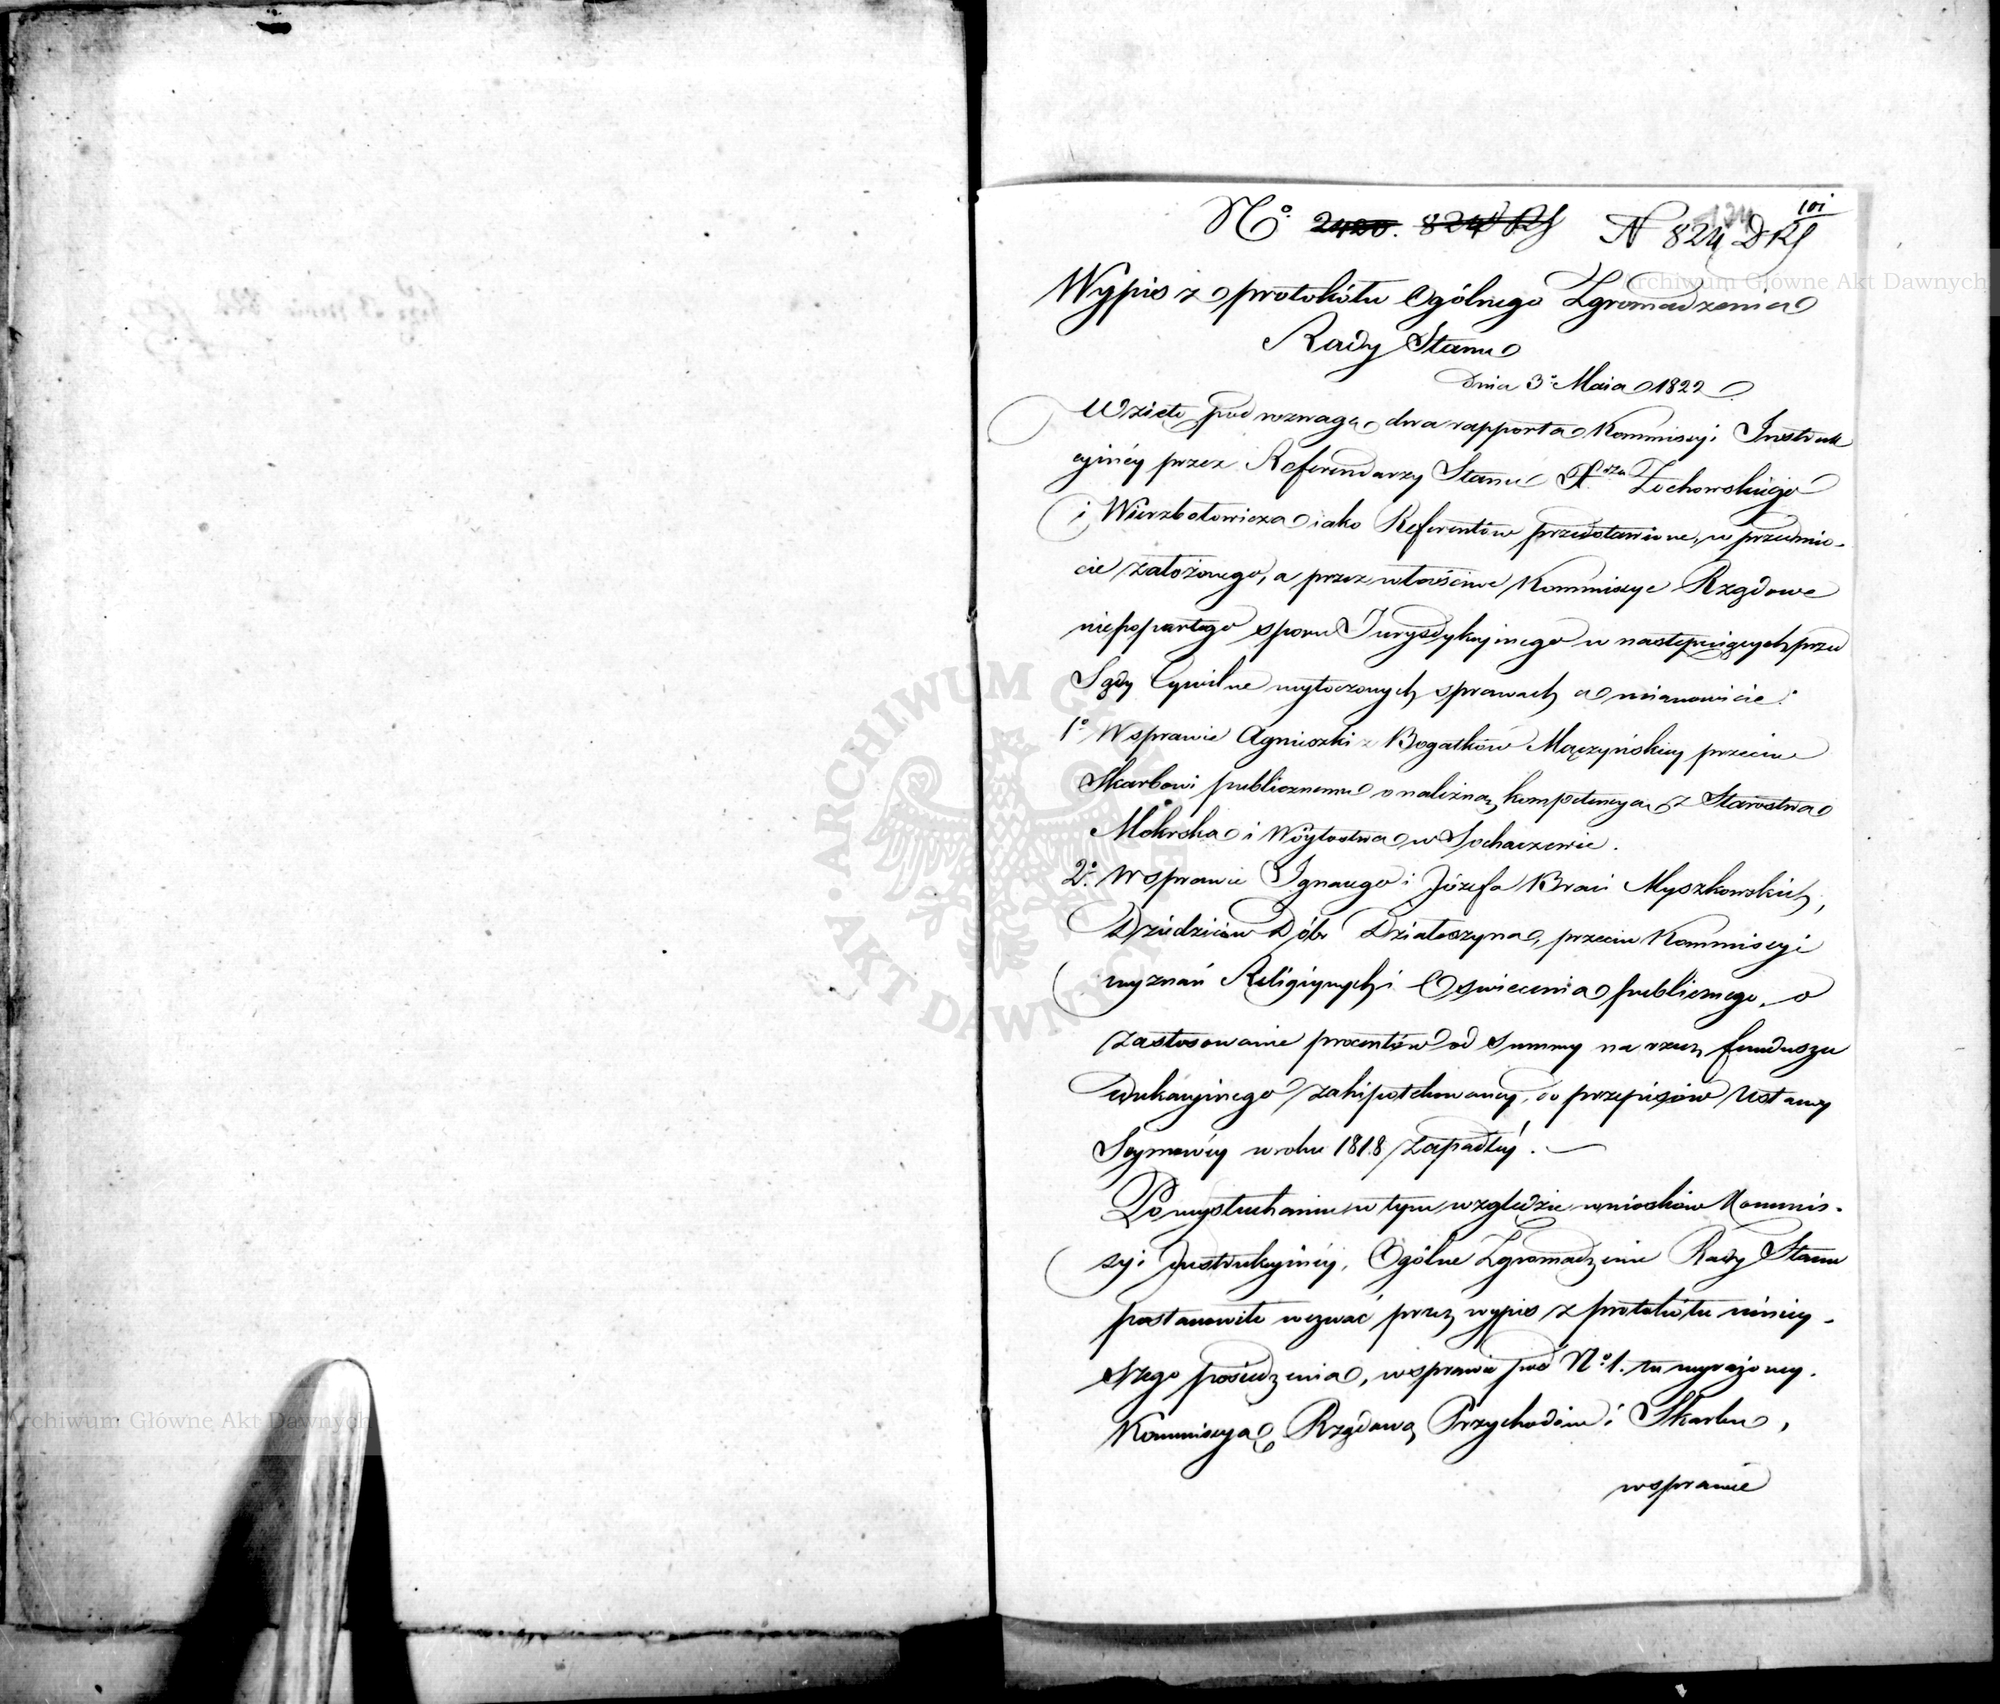 101
124
Nº 2420. 824 DRS N 824 DRS
Wypis z protokółu Ogólnego Zgromadzenia
Rady Stanu
Dnia 3º Maia 1822
Wzięto pod rozwagę dwa rapporta Kommissyi Instruk
cyinéy przez Referendarzy Stanu Xrza Żochowskiego
i Wierzbołowicza iako Referentów przedstawione, w przedmio-
cie założonego, a przez właściwe Kommissye Rządowe
niepopartego sporu Jurysdykcyinego w następuiących przed
Sądy Cywilne wytoczonych sprawach a mianowicie:
1º W sprawie Agnieszki z Bogatków Mączyńskiey przeciw
Skarbowi publicznemu o należną kompetencyą z Starostwa
Mokrska i Wóytostwa w Sochaczewie.
2º. W sprawie Ignacego i Józefa Braci Myszkowskich,
Dziedziców Dóbr Działoszyna, przeciw Kommissyi
wyznań Religiynych i Oswiecenia publicznego, o
zastosowanie procentów od summy na rzecz funduszu
edukacyinego zahipotekowaney, do przepisów Ustawy
Seymowéy w roku 1818 zapadłéy. —
Po wysłuchaniu w tym względzie wniosków Kommis-
syi Instrukcyinéy, Ogólne Zgromadzenie Rady Stanu
postanowiło wezwać przez wypis z protokółu niniey-
szego posiedzenia, w sprawie pod Nº 1. tu wyrażoney.
Kommissyą Rządową Przychodów i Skarbu,
w sprawie
Archiwum Główne Akt Dawnych
Archiwum Główne Akt Dawnych